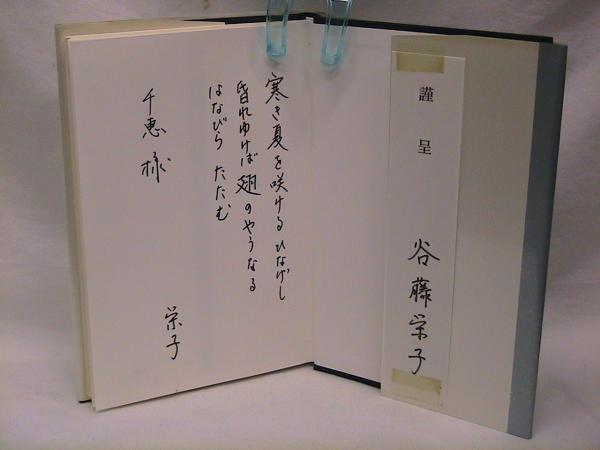 謹呈
谷藤栄子
寒き夏を咲けるひなげし
昏れゆけば翅のやうなる
はなびらたたむ
千恵様
栄子